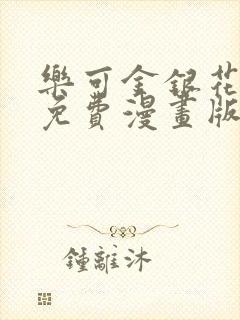 樂可金銀花
免費漫畫版
鍾離沐